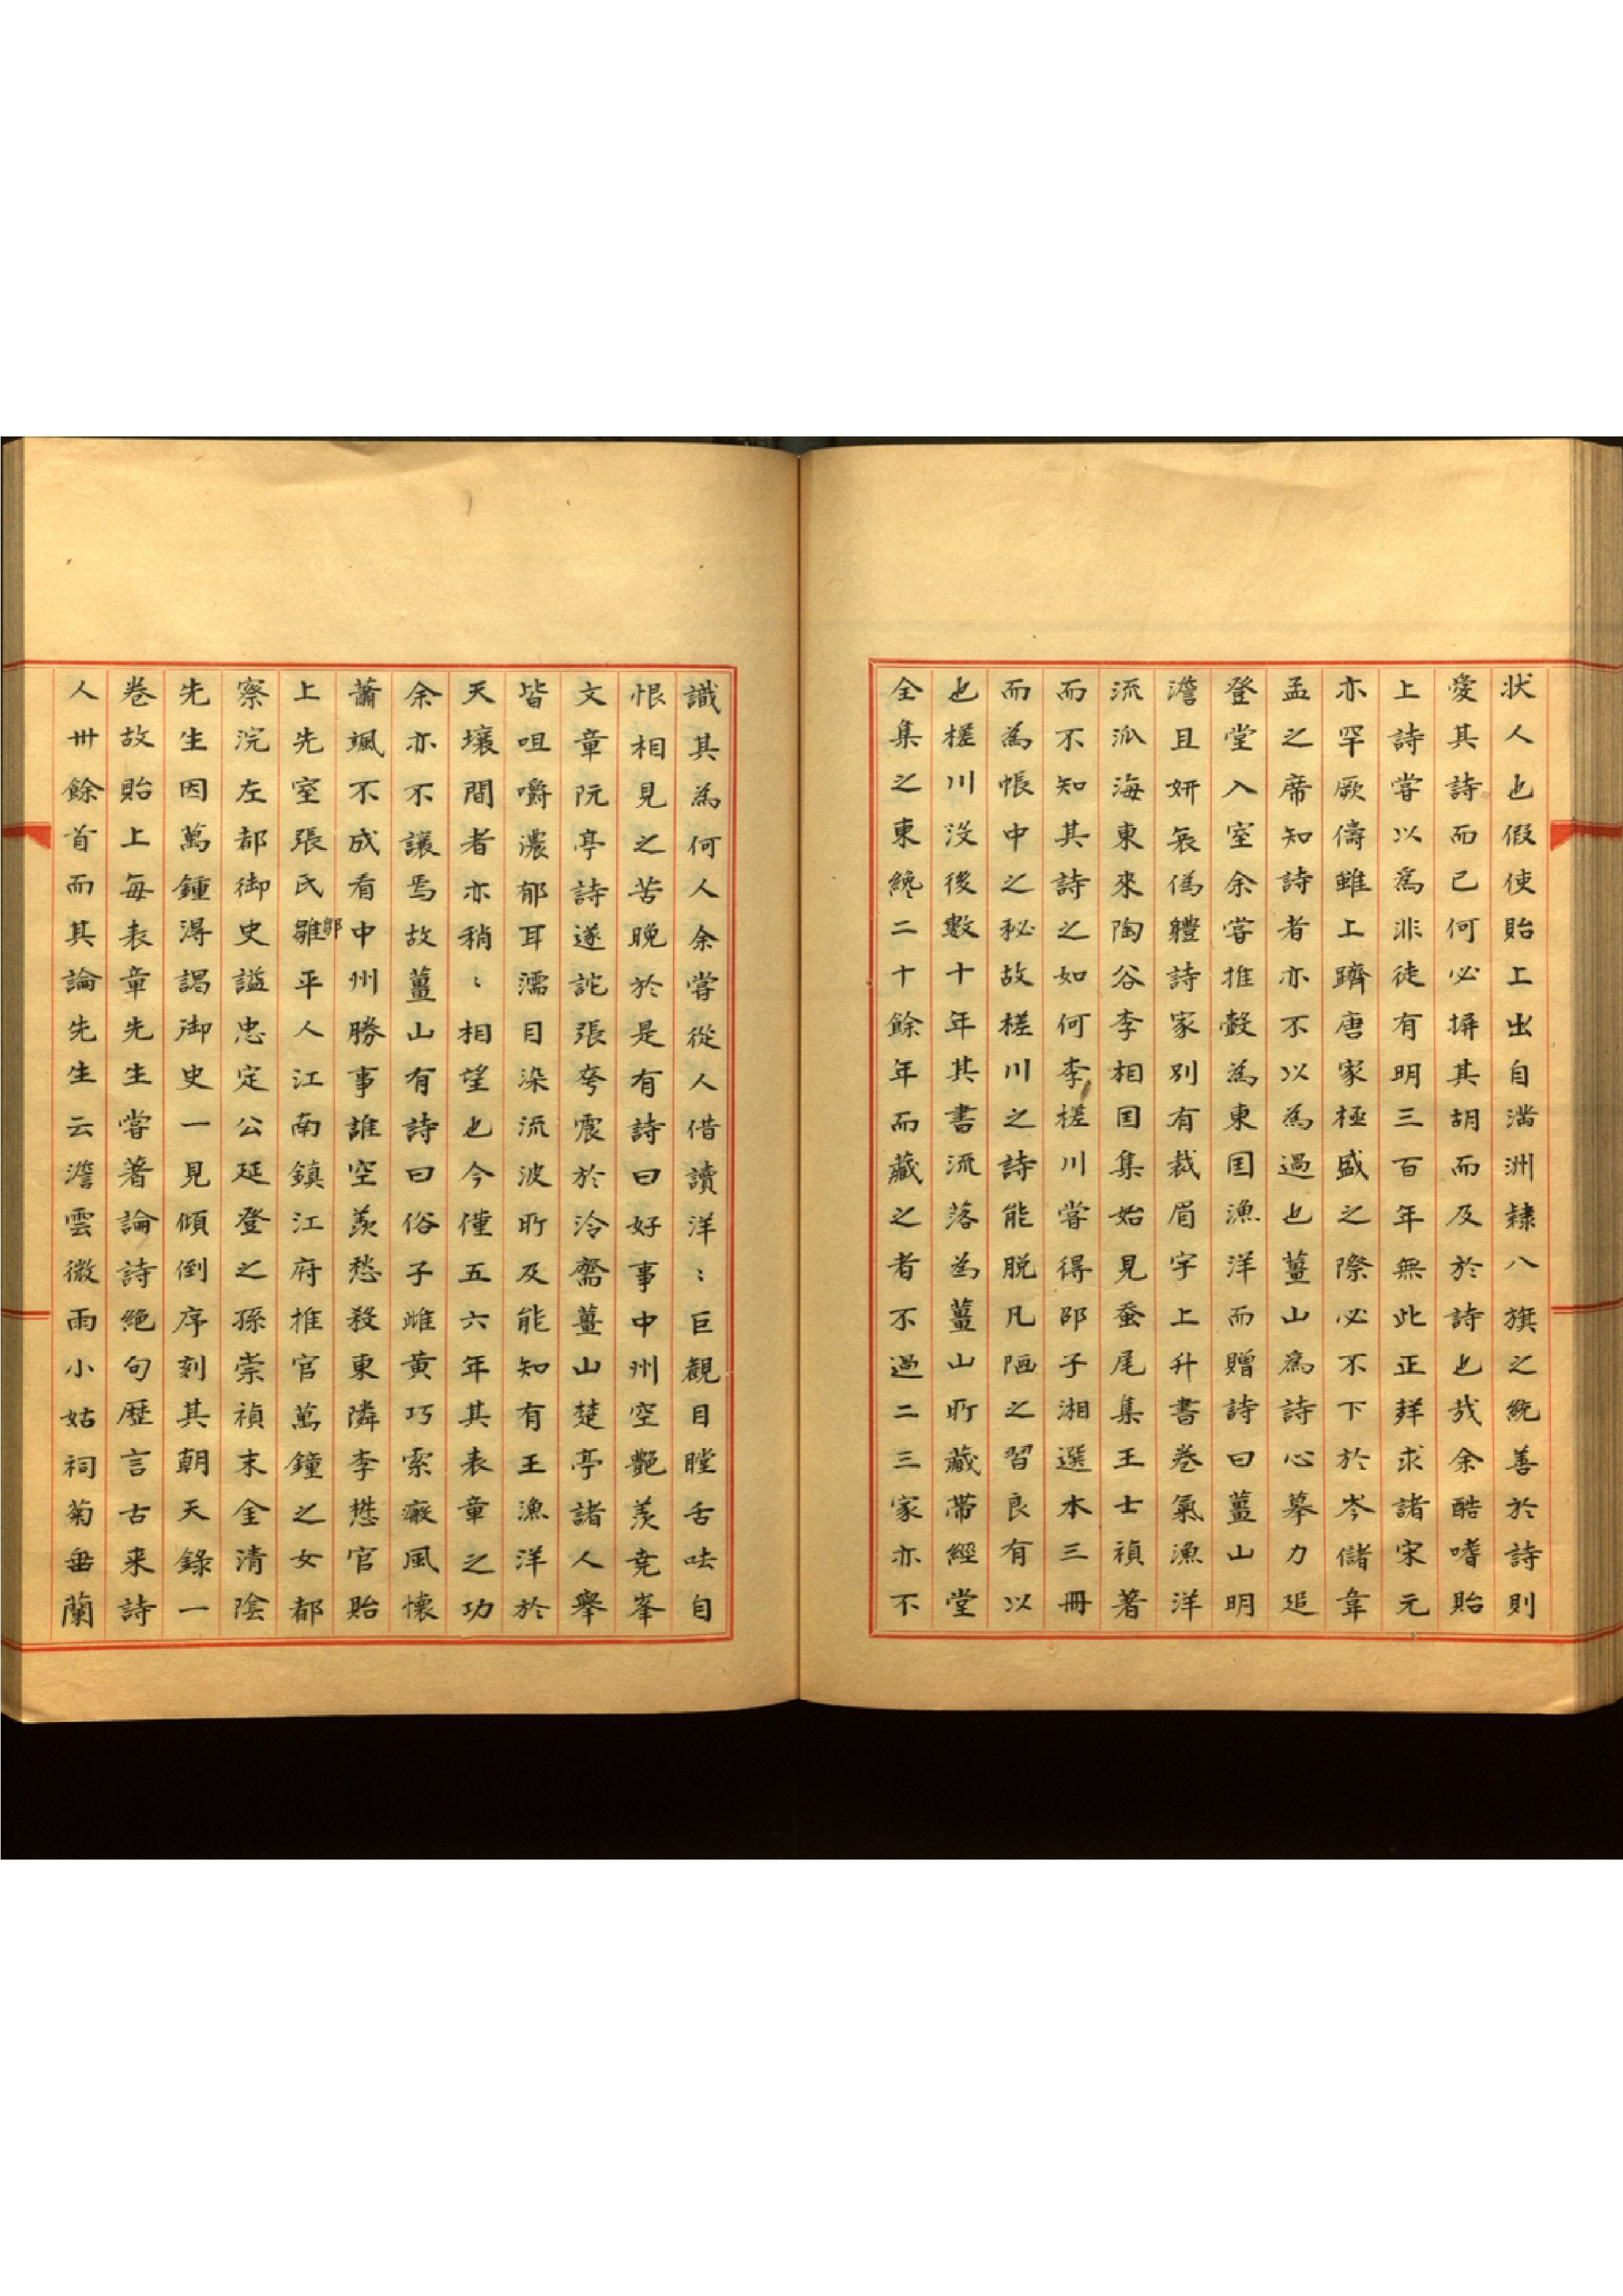 状人也假使貽上出自満洲隷八旗之統善於詩則
愛其詩而已何必摒其胡而及於詩也㢤余酷嗜貽
上詩嘗以爲非徒有明三百年無此正𢒎求諸宋元
亦罕厥儔雖上躋唐家極盛之際必不下於岑儲韋
孟之席知詩者亦不以為過也薑山爲詩心摹力追
登堂入室余嘗推轂為東国漁洋而贈詩曰薑山明
澹且妍哀偽軆詩家別有裁眉宇上升書卷氣漁洋
流派海東來陶谷李相国集始見蚕尾集王士禎著
而不知其詩之如何李槎川嘗得邵子湘選本三冊
而為帳中之秘故槎川之詩能脱凡陋之習良有以
也槎川沒後數十年其書流落為薑山所藏帶經堂
全集之東纔二十餘年而藏之者不過二三家亦不
識其為何人余嘗從人借讀洋〻巨觀目瞠舌呿自
恨相見之苦晚於是有詩曰好事中州空艷羨堯峯
文章阮亭詩遂詑張夸震於泠齋薑山楚亭諸人擧
皆咀嚼濃郁耳濡目染流波所及能知有王漁洋於
天壤間者亦稍〻相望也今僅五六年其表章之功
余亦不讓焉故薑山有詩曰俗子雌黃巧索癥風懷
蕭颯不成看中州勝事誰空羨愁殺東隣李懋官貽
上先室張氏雛鄒平人江南鎮江府推官萬鐘之女都
察浣左都御史謚忠定公延登之孫崇禎末金清陰
先生因萬鍾淂謁御史一見傾倒序刻其朝天錄一
卷故貽上每表章先生嘗著論詩絶句歷言古来詩
人卅餘首而其論先生云澹雲微雨小姑祠菊垂蘭